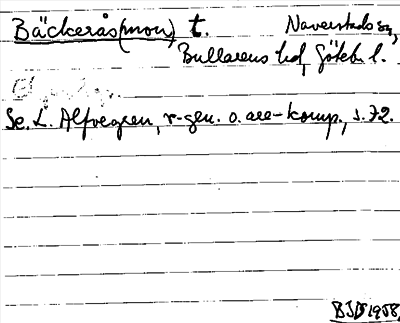 Bäckerås(mon) t. Naverstads sn,
Bullarens hd, Göteb. l.
Se L. Alfvegren, r-gen. o. are-komp., s. 72.
BJD 1958